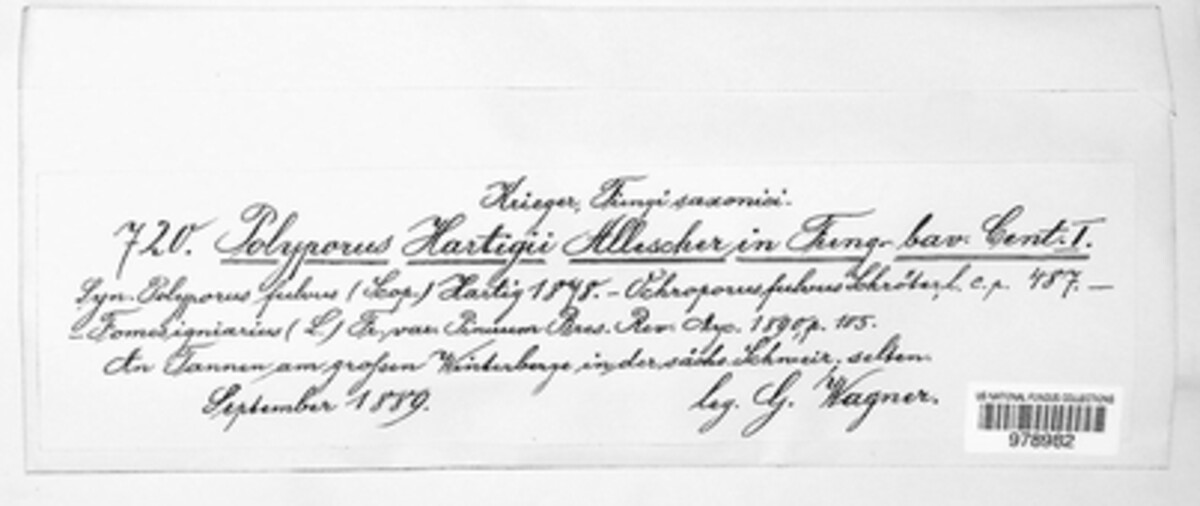 Krieger, Fungi saxonici.
720. Polyporus Hartigii Allescher in Fung. bav. Cent. I.
Syn. Polyporus fulvus (Scop.) Hartig 1878. – Ochroporus fulvus Schröter, l. c. p. 487. –
– Fomes igniarius (L.) Fr. var. Pinuum Bres. Rev. Myc. 1890, p. 105.
An Tannen am grossen Winterberge in der sächs. Schweiz, selten.
September 1889. leg. G. Wagner.
US NATIONAL FUNGUS COLLECTIONS
978982